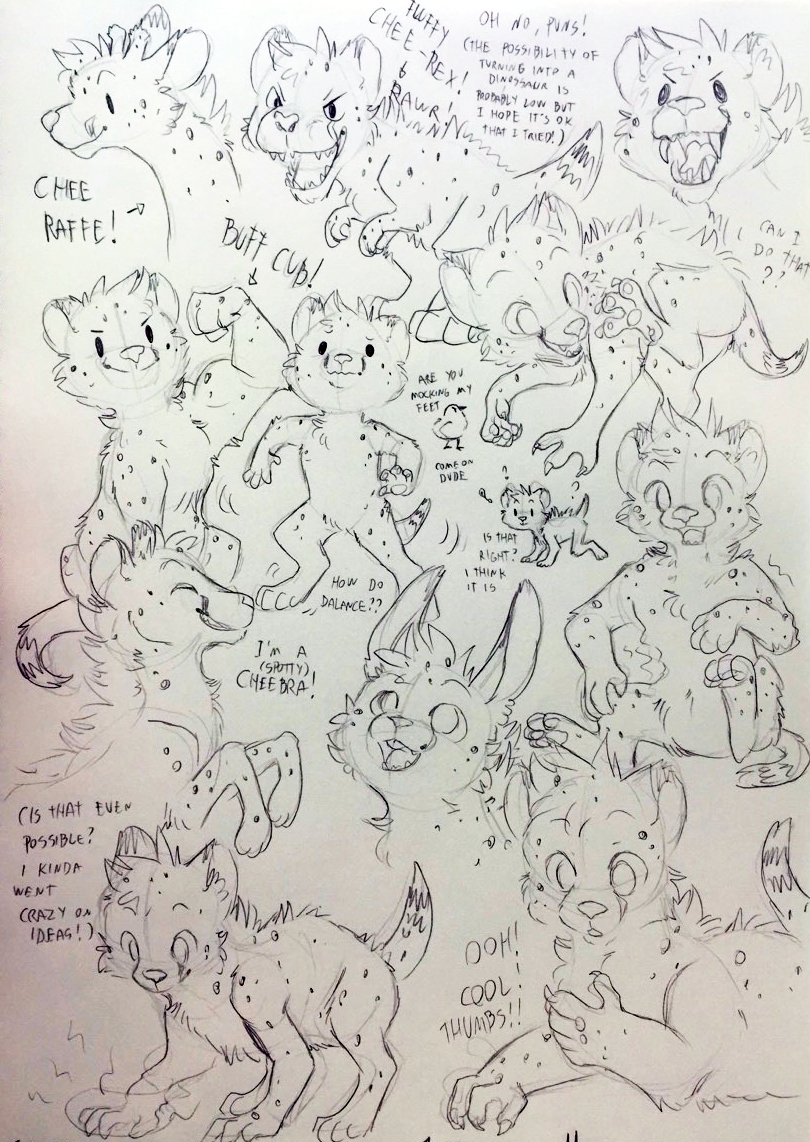 FLUFFY
CHEE-REX!
RAWR!
OH NO, PUNS!
(THE POSSIBILITY OF
TURNING INTO A
DINOSSAUR IS
PROBABLY LOW BUT
I HOPE IT'S OK
THAT I TRIED!)
CHEE
RAFFE!
BUFF CUB!
CAN I
DO THAT
??
ARE YOU
MOCKING MY
FEET
COME ON
DUDE
IS THAT
RIGHT?
I THINK
IT IS
HOW DO
BALANCE??
I'M A
(SPOTTY)
CHEEBRA!
(IS THAT EVEN
POSSIBLE?
I KINDA
WENT
CRAZY ON
IDEAS!)
OOH!
COOL!
THUMBS!!